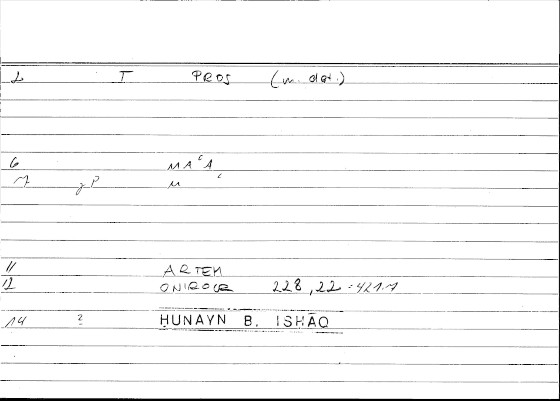 2 T PROS (m. dat.)
6 MAʿA
7 γP M ʿ
11 ARTEM
12 ONIROCR 228,22 = 421.1
14 2 ḤUNAYN B. ISḤĀQ